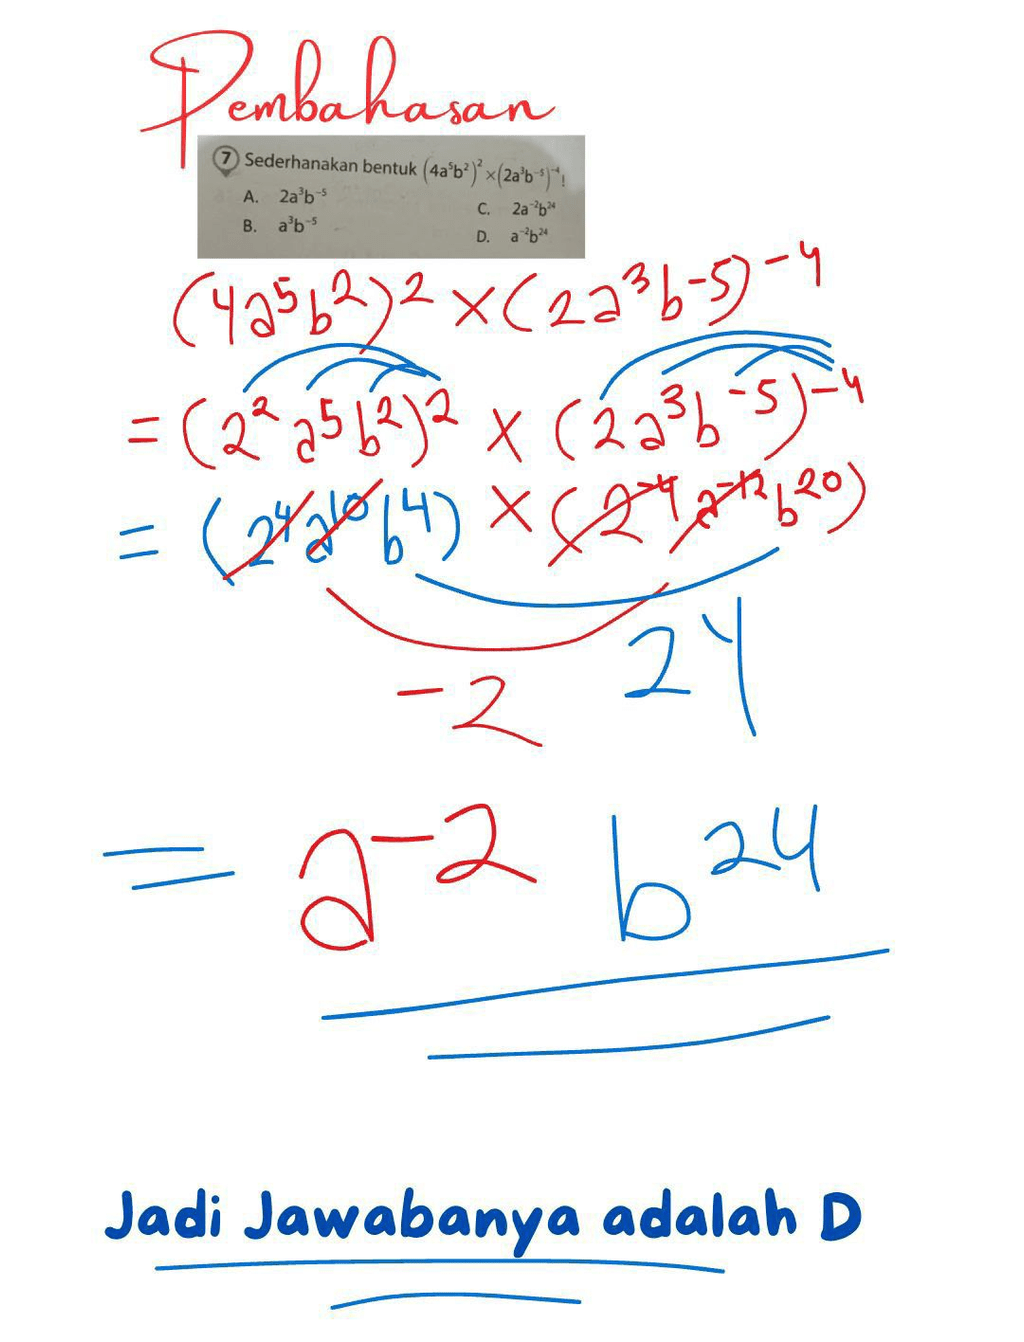 Pembahasan
7 Sederhanakan bentuk (4a⁵b²)² × (2a³b⁻⁵)⁻⁴!
A. 2a³b⁻⁵
C. 2a⁻²b²⁴
B. a³b⁻⁵
D. a⁻²b²⁴
(4a⁵b²)² × (2a³b-5)⁻⁴
= (2²a⁵b²)² × (2a³b⁻⁵)⁻⁴
= (2⁴a¹⁰b⁴) × (2⁻⁴a⁻¹²b²⁰)
24
-2
= a⁻² b²⁴
Jadi Jawabanya adalah D